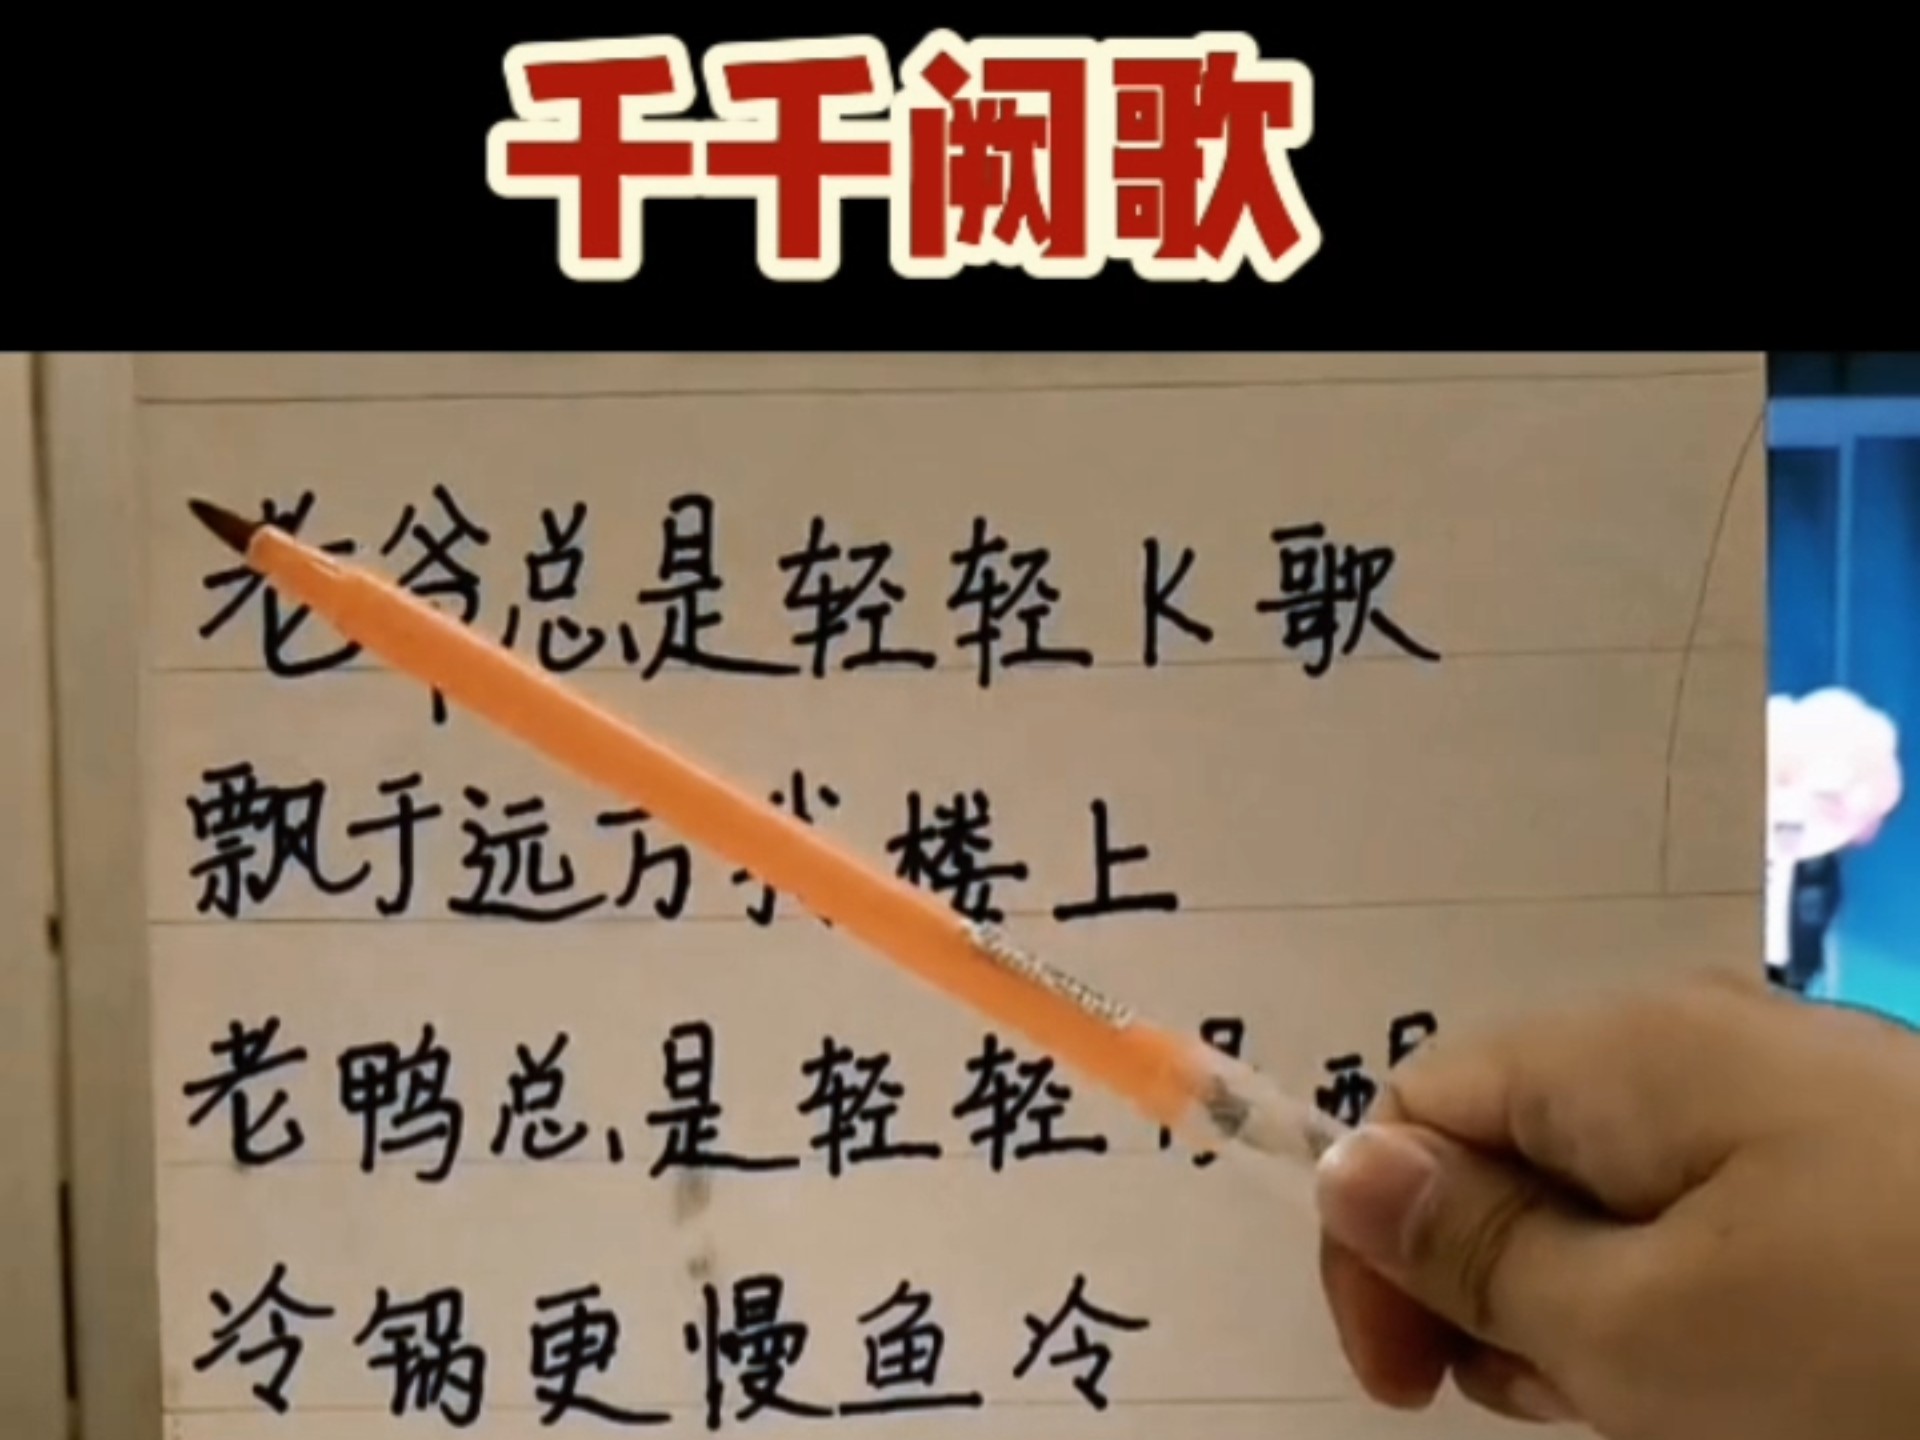 千千阙歌
老爷总是轻轻K歌
飘于远方我楼上
老鸭总是轻轻
冷锅更慢鱼冷